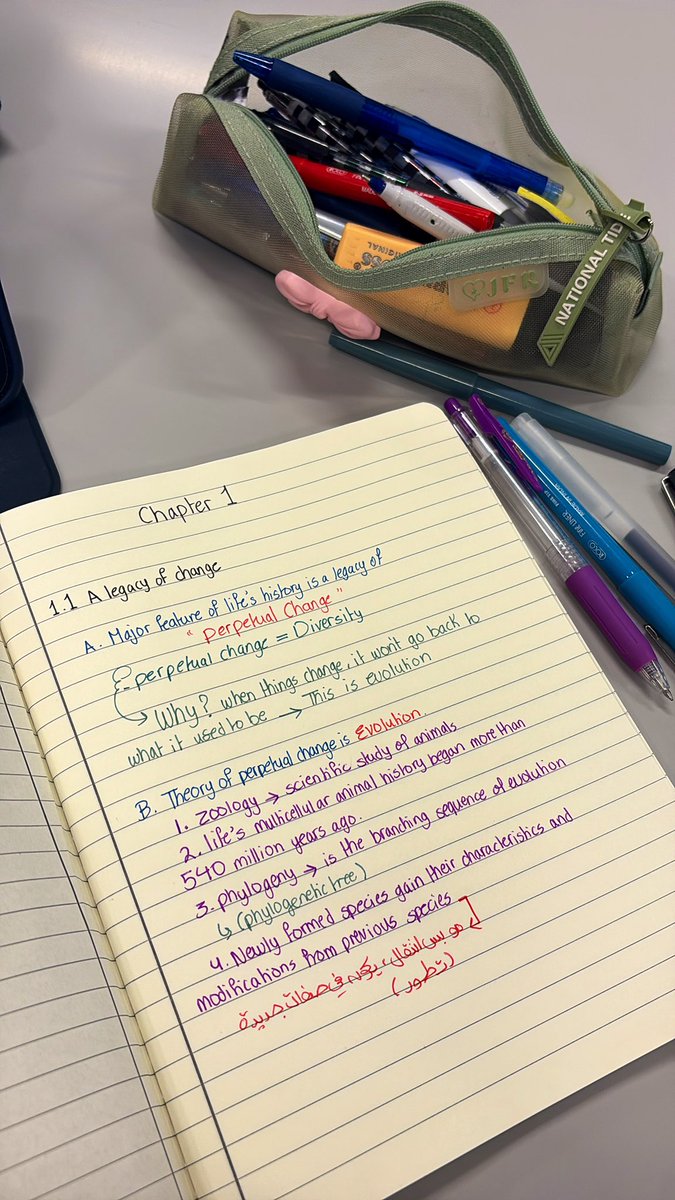 NATIONAL TID
JFK
ORIGINAL
FINE LINER
Chapter 1
1.1 A legacy of change
A. Major feature of life's history is a legacy of
"perpetual Change"
perpetual change = Diversity
Why? when things change, it won't go back to
what it used to be → This is evolution
B. Theory of perpetual change is Evolution.
1. Zoology → scientific study of animals
2. life's multicellular animal history began more than
540 million years ago.
3. phylogeny → is the branching sequence of evolution
↳ (phylogenetic tree)
4. Newly formed species gain their characteristics and
modifications from previous species
مو بس انتقال، يكون في صفات جديدة
(تطور)